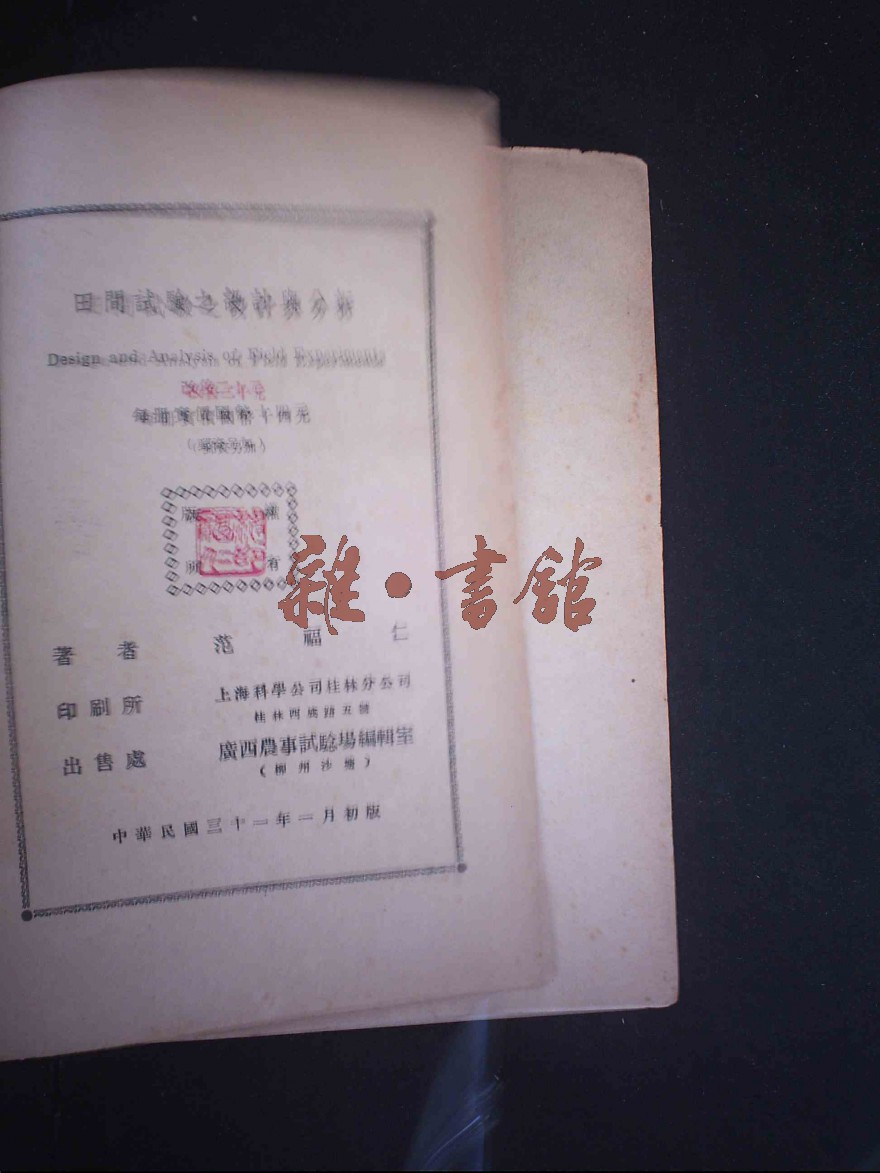 田間試驗之設計與分析
Design and Analysis of Field Experiments
每冊實價國幣十四元
版權
所有
雜·書館
著者 范福仁
印刷所 上海科學公司桂林分公司
桂林西路五號
出售處 廣西農事試驗場編輯室
(柳州沙塘)
中華民國三十一年一月初版